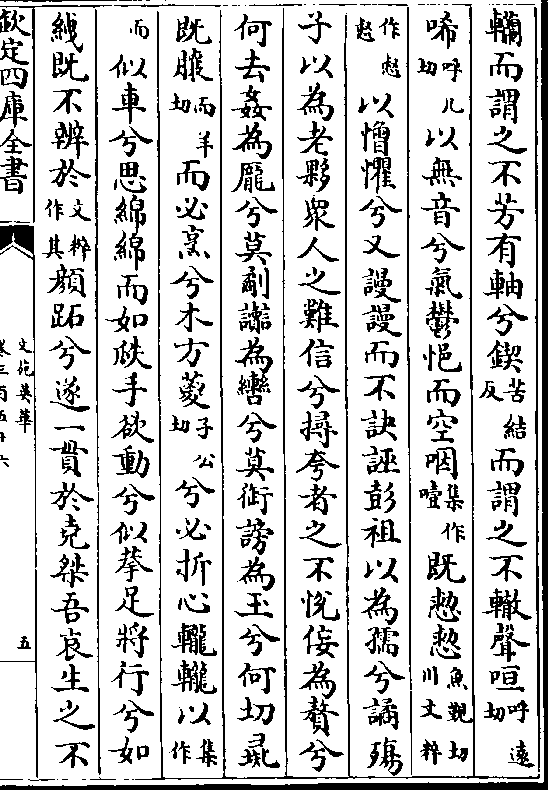 而謂之不芳有軸兮鍥苦結反而謂之不轍聲咺呼遠切
唏呼几切以無音兮氣鬱悒而空咽集作噎既憗憗魚覲切川文粹
作愁愁以憎懼兮又謾謾而不訣誣彭祖以為孺兮譎殤
子以為老夥衆人之難信兮撏夸者之不悅侫為贅兮
何去姦為厖兮莫剷讟為轡兮莫銜謗為玉兮何切鼎
既而羊切而必烹兮木方葼子公切兮必折心以集作
而似車兮思綿綿而如瓞手欲動兮似拲足將行兮如
絏既不辨於文粹作其顔跖兮遂一貫於堯桀吾哀生之不
欽定四庫全書
文苑英華
卷三百五十六
五